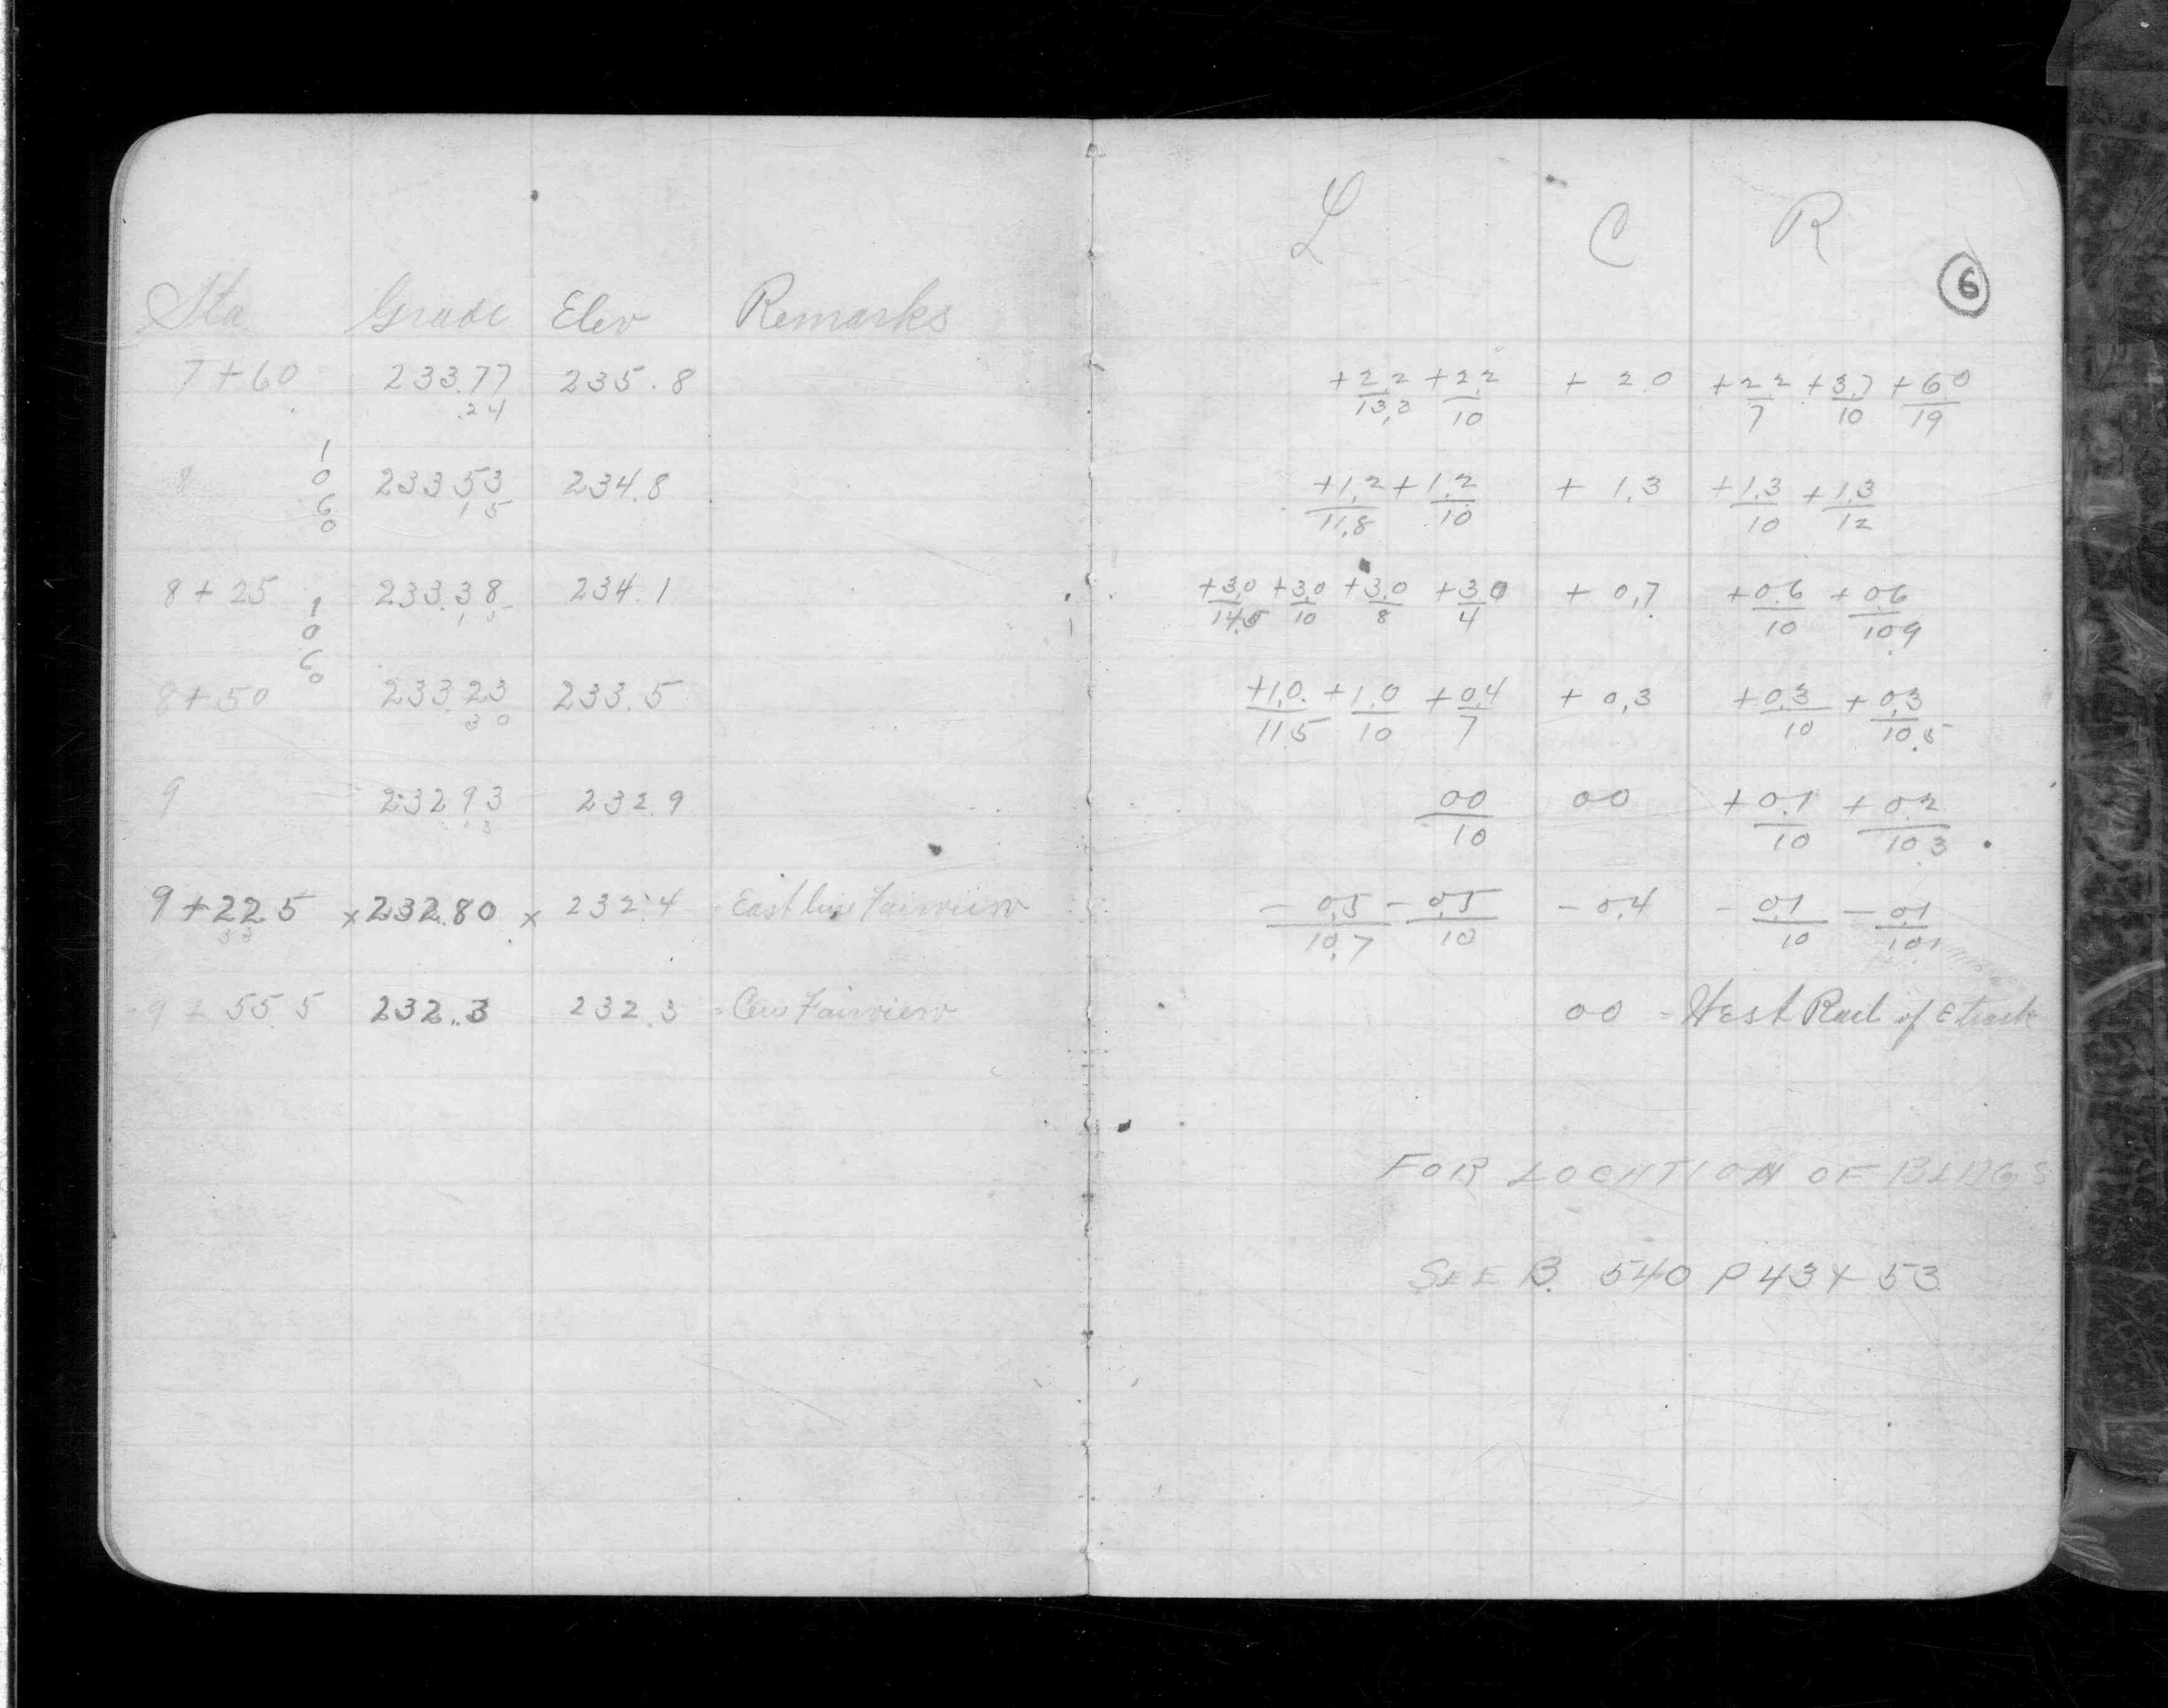 Sta Grade Elev Remarks
7+60 233.77 235.8
.24
1
0
6
0
8 233.53 234.8
15
8+25 233.38 234.1
15
1
0
6
0
8+50 233.23 233.5
30
9 232.93 232.9
9+22.5 x 232.80 x 232.4 - East line Fairview
33
9+55.5 232.3 232.3 - Cen Fairview
L C R
6
+2.2/13.3 +2.2/10 + 2.0 +2.2/7 +3.7/10 +6.0/19
+1.2/11.8 +1.2/10 + 1.3 +1.3/10 +1.3/12
+3.0/14.5 +3.0/10 +3.0/8 +3.0/4 + 0.7 +0.6/10 +0.6/10.9
+1.0/11.5 +1.0/10 +0.4/7 + 0.3 +0.3/10 +0.3/10.5
00/10 00 +0.1/10 +0.2/10.3
-0.5/10.7 -0.5/10 -0.4 -0.1/10 -0.1/10.1
00 = West Rail of E track
FOR LOCATION OF BLDGS
SEE B. 540 P 43 + 53